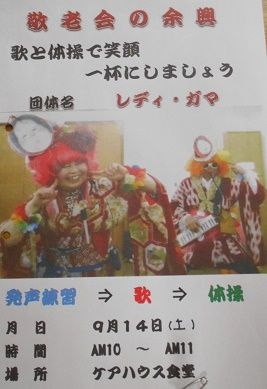 敬老会の余興
歌と体操で笑顔
一杯にしましょう
団体名 レディ・ガマ
発声練習 ⇒ 歌 ⇒ 体操
月 日 9月14日(土)
時 間 AM10 ~ AM11
場 所 ケアハウス食堂